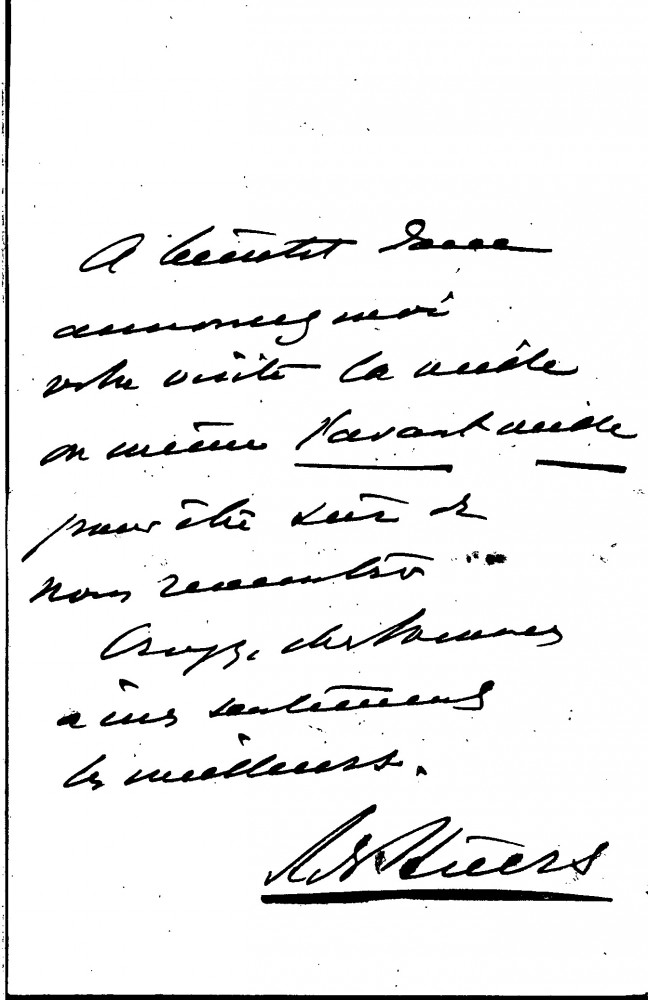 A bientôt donc
annoncez moi
votre visite la veille
ou même l'avant veille
pour être sûr de
nous rencontrer
Croyez, cher
à mes sentiments
les meilleurs.